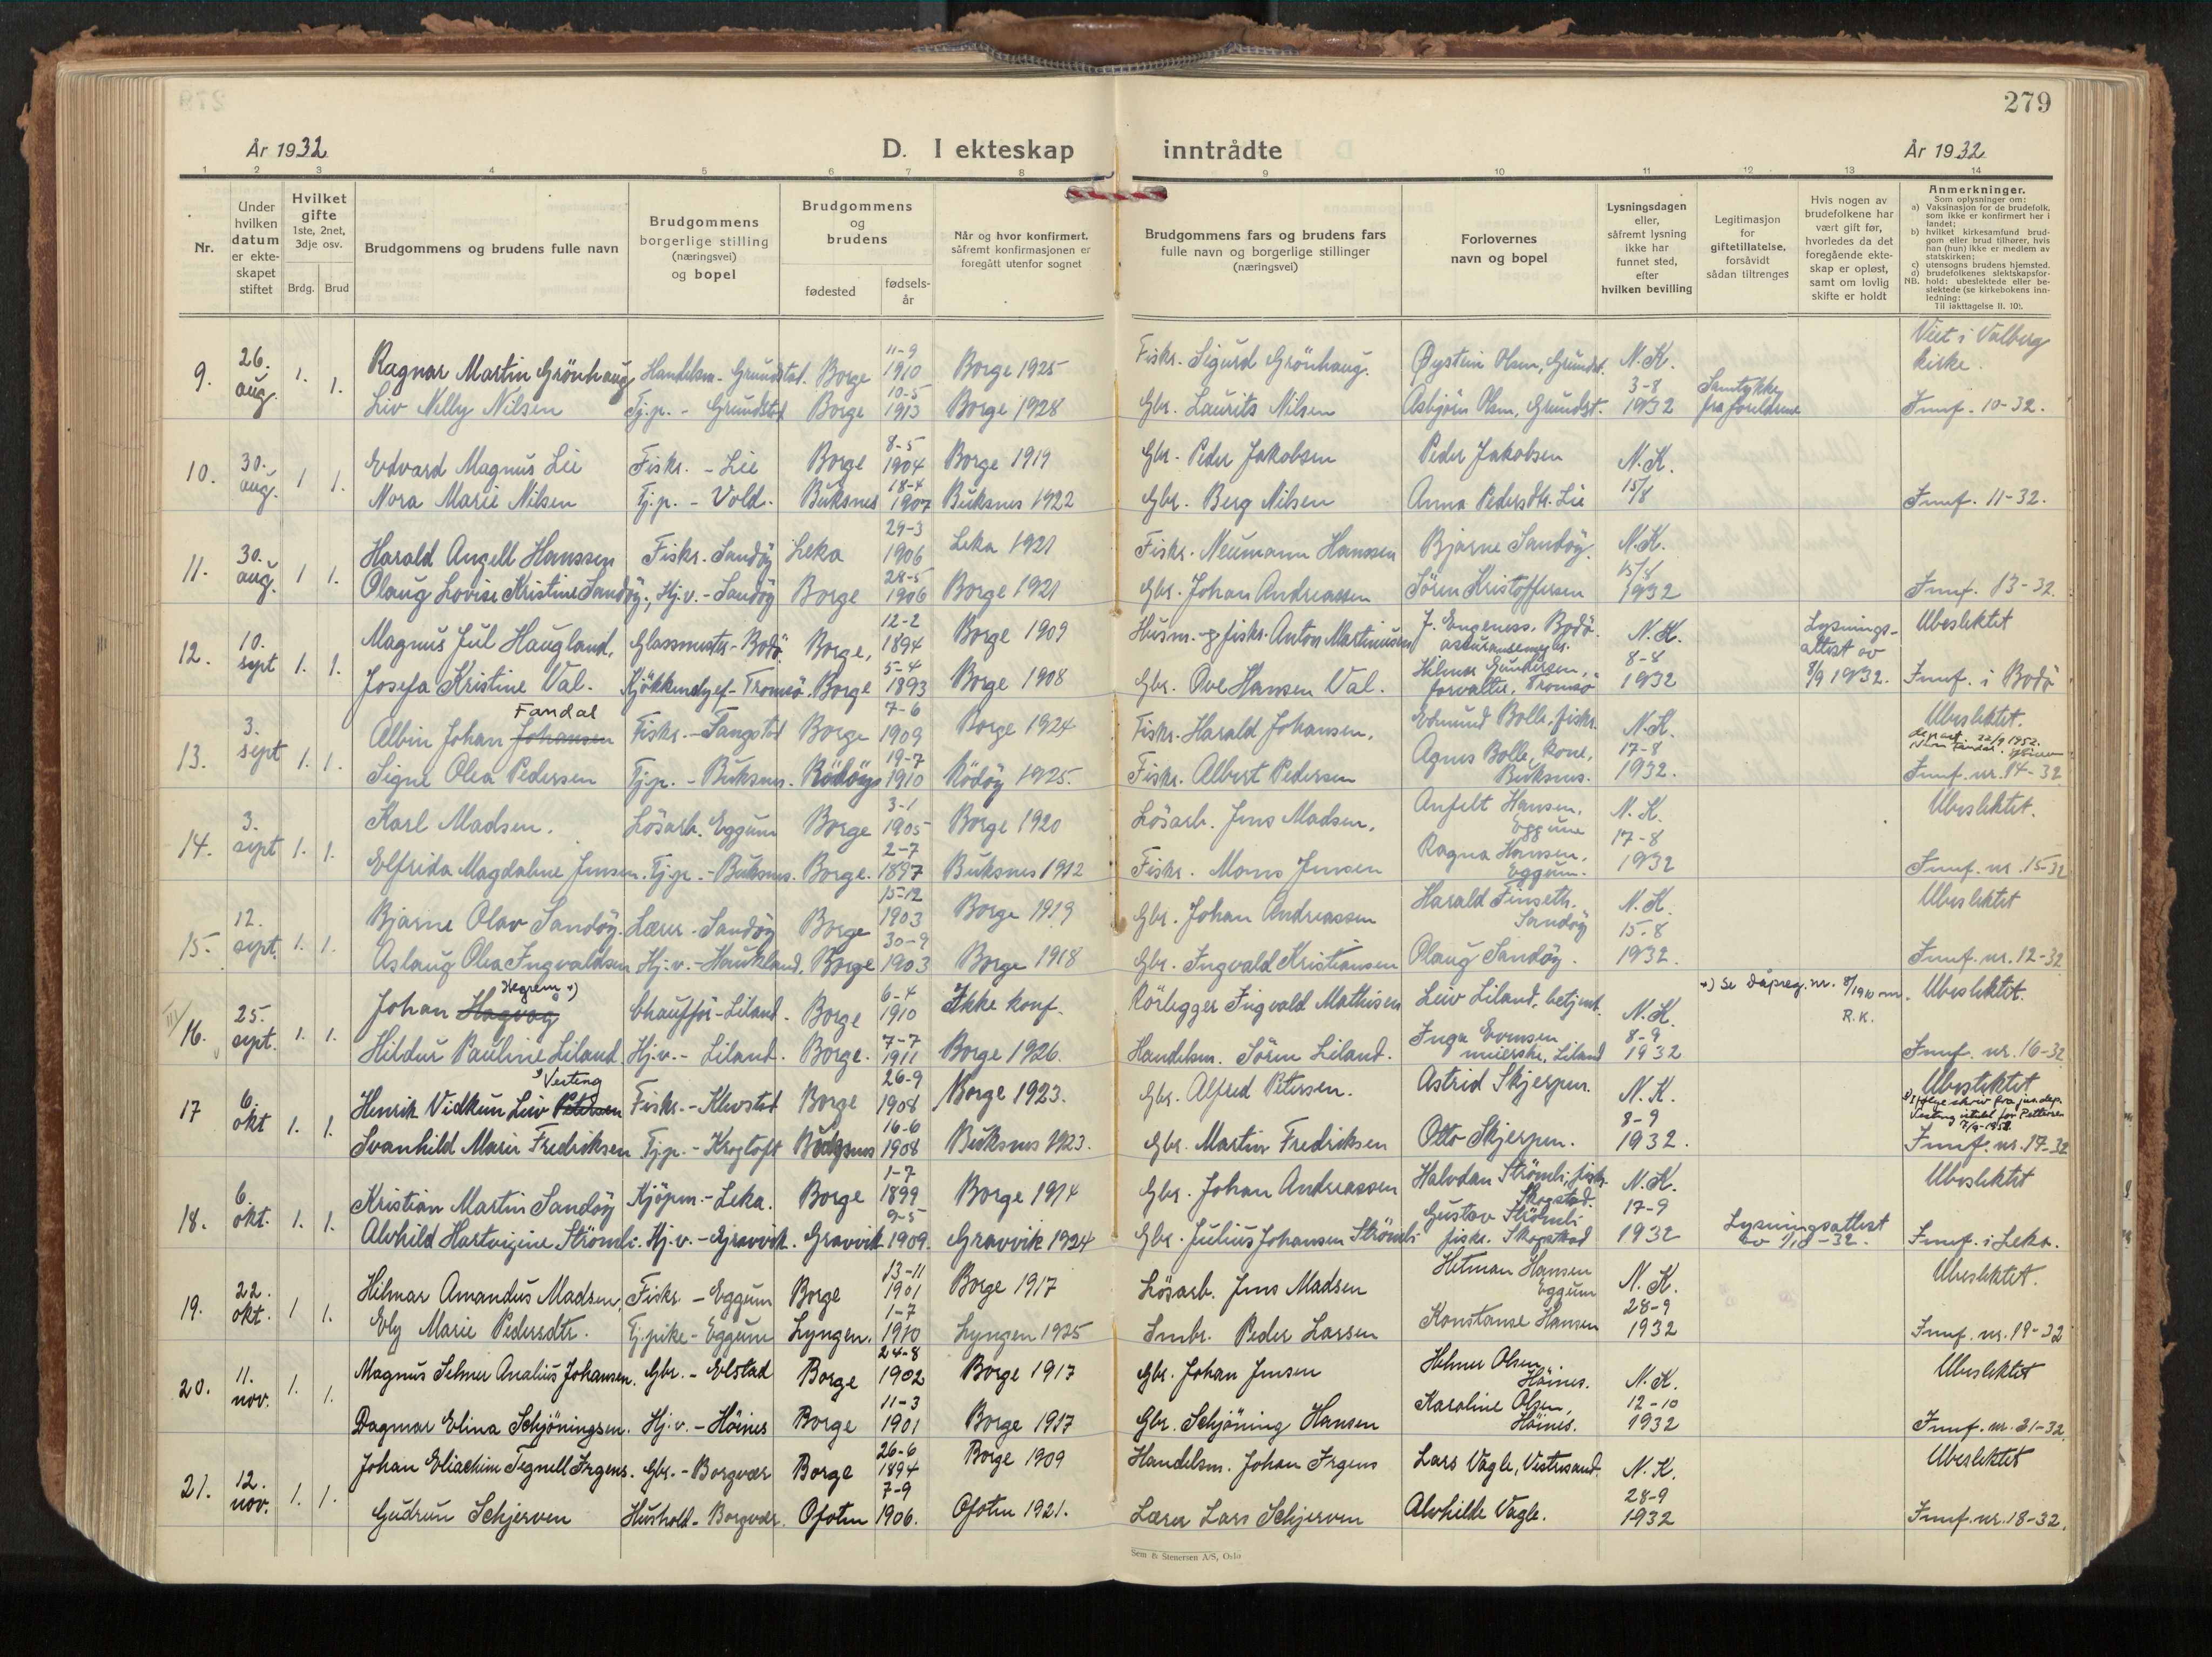 279
År 1932
D. I ekteskap inntrådte
År 1932
1 2 3 4 5 6 7 8 9 10 11 12 13 14
Nr.
Under hvilken datum er ekte-skapet stiftet
Hvilket gifte 1ste, 2net, 3dje osv.
Brdg. Brud
Brudgommens og brudens fulle navn
Brudgommens borgerlige stilling (næringsvei) og bopel
Brudgommens og brudens
fødested
fødsels-år
Når og hvor konfirmert, såfremt konfirmasjonen er foregått utenfor sognet
Brudgommens fars og brudens fars fulle navn og borgerlige stillinger (næringsvei)
Forlovernes navn og bopel
Lysningsdagen eller, såfremt lysning ikke har funnet sted, efter hvilken bevilling
Legitimasjon for giftetillatelse, forsåvidt sådan tiltrenges
Hvis nogen av brudefolkene har vært gift før, hvorledes da det foregående ekte-skap er opløst, samt om lovlig skifte er holdt
Anmerkninger.
Som oplysninger om:
a) Vaksinasjon for de brudefolk, som ikke er konfirmert her i landet;
b) hvilket kirkesamfund brud-gom eller brud tilhører, hvis han (hun) ikke er medlem av statskirken;
c) utensogns brudens hjemsted.
d) brudefolkenes slektskapsfor-
NB. hold: ubeslektede eller be-slektede (se kirkebokens inn-ledning:
Til iakttagelse II. 10).
9. 26. aug. 1. 1. Ragnar Martin Grönhaug Handelsm. Grundstad. Borge 11-9 1910 Borge 1925 Fiskr. Sigurd Grönhaug. Øystein Olsen, Grundst. N.K. 3-8 1932 Viet i Valberg kirke.
Liv Nelly Nilsen Tj.p. - Grundstad Borge 10-5 1913 Borge 1928 Gbr. Laurits Nilsen Asbjörn Olsen, Grundst. Samtykke fra foreldrene Innf. 10-32.
10. 30. aug. 1 1. Edvard Magnus Lie Fiskr. - Lie Borge 8-5 1904 Borge 1919 Gbr. Peder Jakobsen Peder Jakobsen N.K. 15/8
Nora Marie Nilsen Tj.p. - Vold. Buksnes 18-4 1907 Buksnes 1922 Gbr. Berg Nilsen Anna Pedersdtr. Lie Innf. 11-32.
11. 30. aug. 1 1. Harald Angell Hanssen Fiskr. Sandöy Leka 29-3 1906 Leka 1921 Fiskr. Neumann Hanssen Bjarne Sandöy. N.K. 1932
Olaug Lovise Kristine Sandöy. Hj.v. - Sandöy Borge 28-5 1906 Borge 1921 Gbr. Johan Andreassen Sören Kristoffersen Innf. 13-32.
12. 10. sept 1. 1. Magnus Jul Haugland. Glassmester - Bodö. Borge, 12-2 1894 Borge 1909 Husm. og fiskr. Anton Martinussen J. Engeness, Bodö. N.K. 8-8 1932 Lysnings-attest av 8/9 1932. Ubeslektet
Josefa Kristine Val. Tromsö. Borge 5-4 1893 Borge 1908 Gbr. Ove Hansen Val. Hilmar Gundersen, forvalter, Tromsö Innf. i Bodö
13. 3. sept 1. 1. Albin Johan Johansen Fandal Fiskr. - Tangstad Borge 7-6 1909 Borge 1924 Fiskr. Harald Johansen. Edmund Bolle, fiskr. N.K. 17-8 1932. Ubeslektet.
Signe Olea Pedersen Tj.p. - Buksnes. Rödöy 19-7 1910 Rödöy 1925. Fiskr. Albert Pedersen Agnes Bolle, kone, Buksnes. Innf. nr. 14-32
14. 3. sept 1. 1. Karl Madsen. Lösarb. Eggum Borge 3-1 1905 Borge 1920 Lösarb. Jens Madsen. Anfelt Hansen, Eggum N.K. 17-8 1932 Ubeslektet.
Elfrida Magdalene Jensen. Tj.p. - Buksnes. Borge. 2-7 1897 Buksnes 1912 Fiskr. Mons Jensen Ragna Hansen, Eggum. Innf. nr. 15-32
15. 12. sept. 1. 1. Bjarne Olav Sandöy. Lærer. Sandöy Borge 15-12 1903 Borge 1919 Gbr. Johan Andreassen Harald Finseth. Sandöy N.K. 15-8 1932. Ubeslektet
Aslaug Olea Ingvaldsen Hj.v. - Haukland. Borge 30-9 1903 Borge 1918 Gbr. Ingvald Kristiansen Olaug Sandöy. Innf. nr. 12-32
16. 25. sept. 1. 1. Johan Hagvag +) Chaufför - Liland. Borge 6-4 1910 Ikke konf. Rörlegger Ingvald Mathisen Leiv Liland, betjent. N.K. 8-9 1932 +) Se dåpreg. nr. 8/1910 R.K. Ubeslektet.
Hildur Pauline Liland Hj.v. - Liland. Borge. 7-7 1911 Borge 1926. Handelsm. Sören Liland. Inga Evensen meierske, Liland Innf. nr. 16-32
17 6. okt 1. 1. Henrik Vidkun Leiv Petersen Vesting Fiskr. - Klevstad Borge 26-9 1908 Borge 1923. Gbr. Alfred Petersen. Astrid Skjerpen. N.K. 8-9 1932. Ubeslektet
Ifölge skriv fra jus.dep. Vesting istedf. for Pettersen
Svanhild Marie Fredriksen Tj.p. - Krogtoft Buksnes 16-6 1908 Buksnes 1923. Gbr. Martin Fredriksen Otto Skjerpen. Innf. nr. 17-32
18. 6. okt. 1. 1. Kristian Martin Sandöy Kjöpm. - Leka. Borge 1-7 1899 Borge 1914 Gbr. Johan Andreassen Halvdan Strömli, fiskr. Skogstad. N.K. 17-9 1932 Ubeslektet
Alvhild Hartvigine Strömli. Hj.v. - Gravvik. Gravvik 9-5 1909. Gravvik 1924 Gbr. Julius Johansen Strömli Gustav Strömli fiskr. Skogstad Lysningsattest Innf. i Leka.
19. 22. okt. 1 1. Hilmar Amandus Madsen. Fiskr. - Eggum Borge 13-11 1901 Borge 1917 Lösarb. Jens Madsen Hetman Hansen Eggum N.K. 28-9 1932 Ubeslektet.
Ely Marie Pedersdtr. Tj.pike - Eggum Lyngen. 1-7 1910 Lyngen 1925 Smbr. Peder Larsen Konstanse Hansen Innf. nr. 19-32
20. 11. nov. 1. 1. Magnus Selmer Analius Johansen. Gbr. - Evlstad Borge 24-8 1902 Borge 1917 Gbr. Johan Jensen Helmer Olsen, Höines. N.K. 12-10 1932 Ubeslektet
Dagmar Elina Schjöningsen. Hj.v. - Höines Borge 11-3 1901 Borge 1917 Gbr. Schjöning Hansen Karoline Olsen, Höines. Innf. nr. 21-32.
21. 12. nov. 1. 1. Johan Eliachim Tegnell Irgens. Gbr. - Borgvær Borge 26-6 1894 Borge 1909 Handelsm. Johan Irgens Lars Vagle, Vestresand. N.K. 28-9 1932 Ubeslektet
Gudrun Schjerven Hushold. - Borgvær. Ofoten 7-9 1906. Ofoten 1921. Lærer Lars Schjerven Alvhilde Vagle. Innf. nr. 18-32.
Sem & Stenersen A/S, Oslo